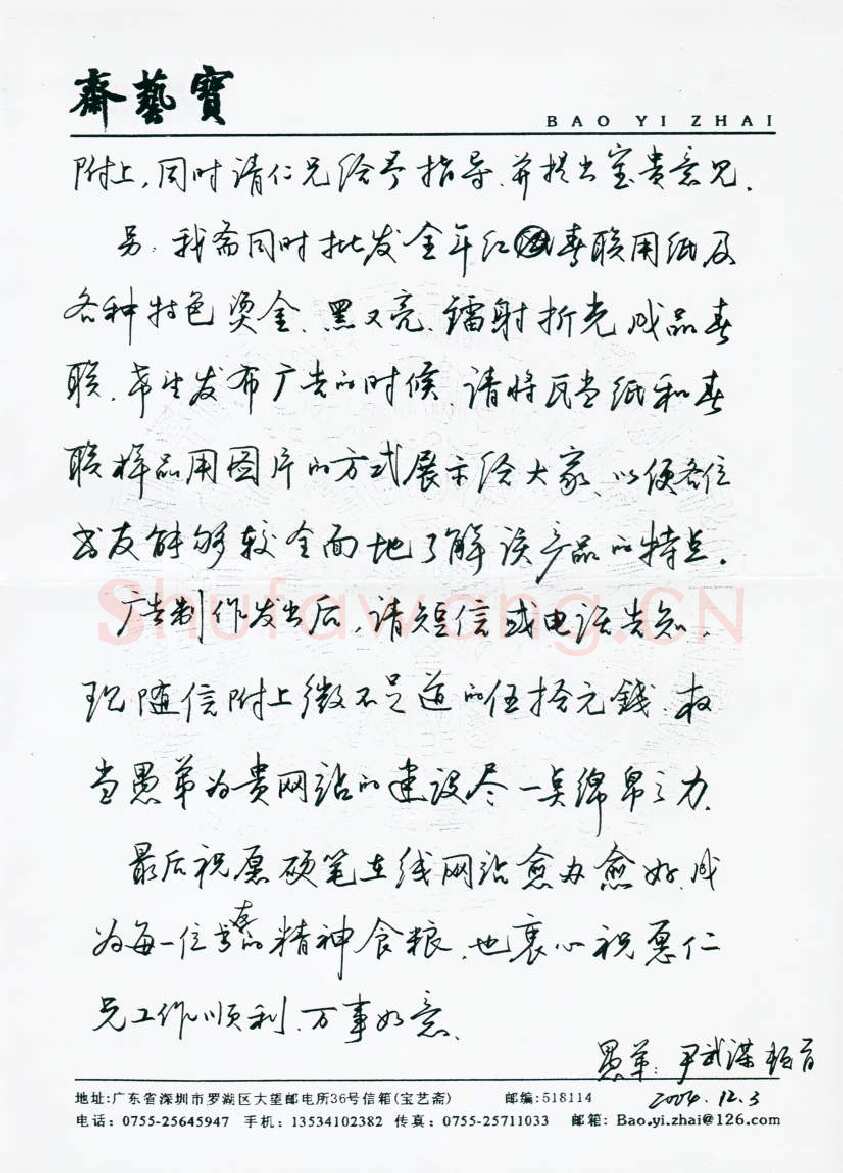 齋藝寶
BAO YI ZHAI
附上,同时请仁兄给予指导.并提出宝贵意见.
另,我斋同时批发全年红春联用纸及
各种特色烫金、黑又亮、镭射折光成品春
联.希望发布广告的时候.请将瓦当纸和春
联样品用图片的方式展示给大家、以便各位
书友能够较全面地了解该产品的特点.
广告制作发出后,请短信或电话告知.
现随信附上微不足道的伍拾元錢.权
当愚弟为贵网站的建设尽一点绵帛之力.
最后祝愿硬笔在线网站愈办愈好.成
为每一位书友的精神食粮.也衷心祝愿仁
兄工作顺利.万事如意.
愚弟:尹武谋
2004.12.3
地址:广东省深圳市罗湖区大望邮电所36号信箱(宝艺斋) 邮编:518114
电话:0755-25645947 手机:13534102382 传真:0755-25711033 邮箱:Bao.yi.zhai@126.com
Shufawang.CN